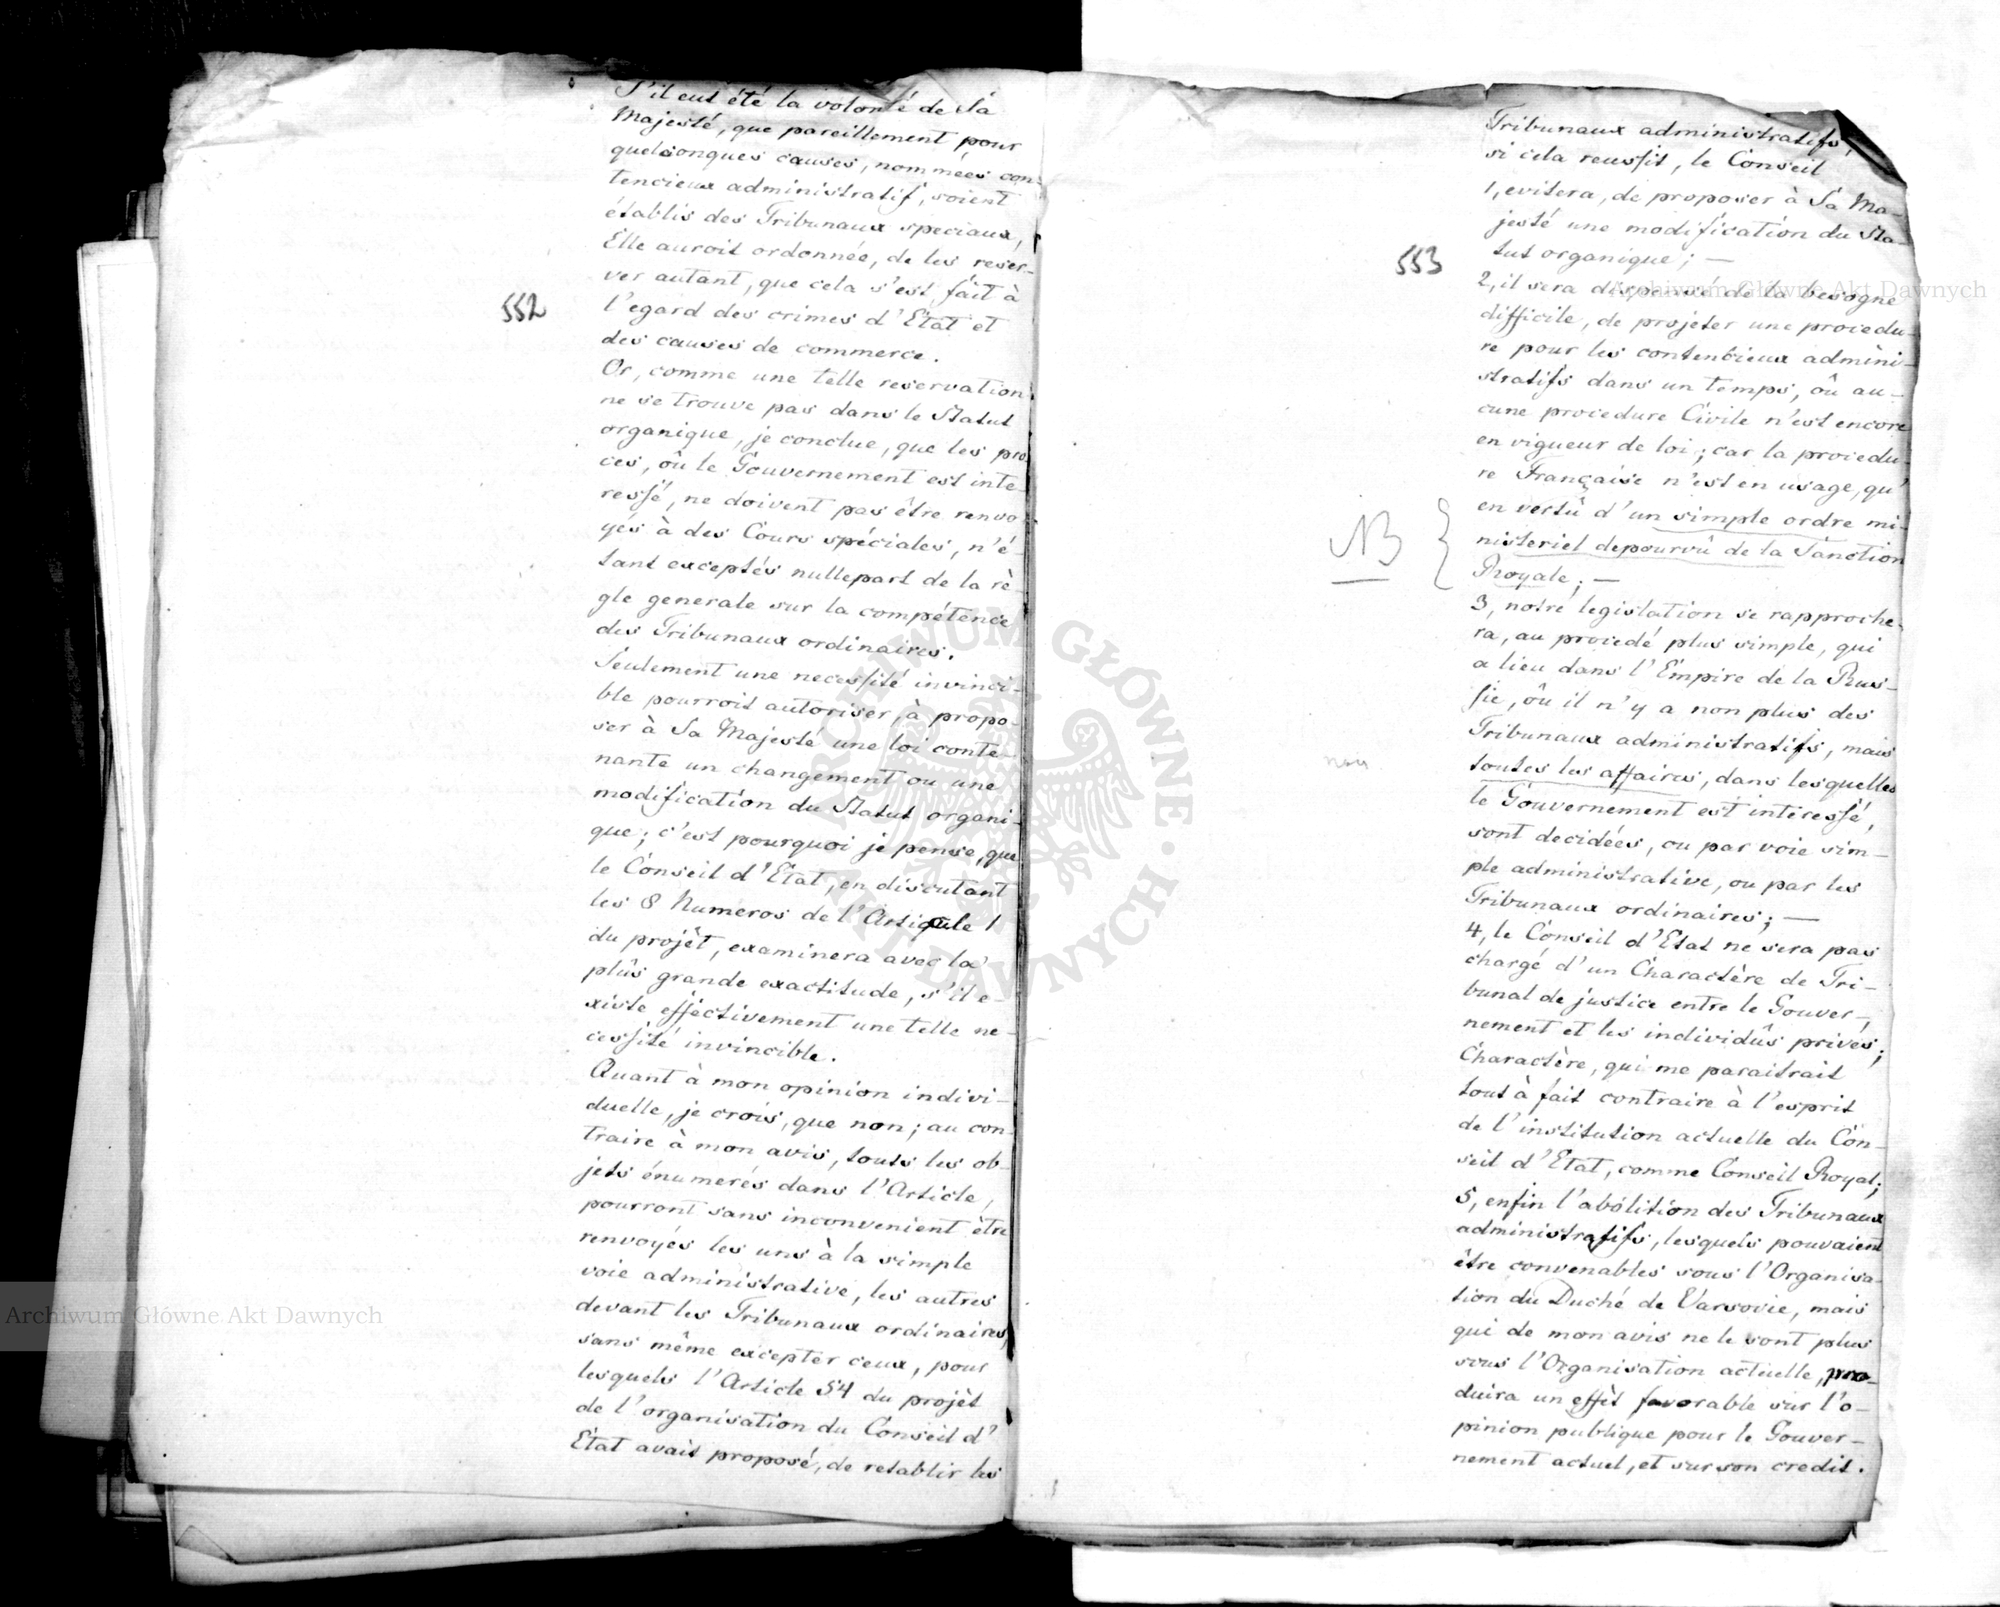 552
S'il eut été la volonté de Sa
Majesté, que pareillement pour
quelconques causes, nommées con-
tencieux administratif, soient
établis des Tribunaux speciaux,
Elle auroit ordonnée, de les reser-
ver autant, que cela s'est fait à
l'egard des crimes d'Etat et
des causes de commerce.
Or, comme une telle reservation
ne se trouve pas dans le Statut
organique, je conclue, que les pro
ces, oû le Gouvernement est inte-
ressé, ne doivent pas être renvo
yés à des Cours spéciales, n'é-
tant exceptés nullepart de la rè-
gle generale sur la compétence
des Tribunaux ordinaires.
Seulement une necessité invinci-
ble pourroit autoriser, à propo-
ser à Sa Majesté une loi conte-
nante un changement ou une
modification du Statut organi-
que; c'est pourquoi je pense, que
le Conseil d'Etat, en discutant
les 8 Numeros de l'Article 1
du projêt, examinera avec la
plûs grande exactitude, s'il e-
xiste effectivement une telle ne-
cessité invincible.
Quant à mon opinion indivi-
duelle, je crois, que non; au con-
traire à mon avis, touts les ob-
jets énumerés dans l'Article,
pourront sans inconvenient être
renvoyés les uns à la simple
voie administrative, les autres
devant les Tribunaux ordinaires,
sans même excepter ceux, pour
lesquels l'Article 54 du projèt
de l'organisation du Conseil d'
Etat avait proposé, de retablir les
553
Tribunaux administratifs,
si cela reussit, le Conseil
1, evitera, de proposer à Sa Ma-
jesté une modification du Sta-
tut organique; —
2, il sera dispensé de la besogne
difficile, de projeter une procedu-
re pour les contentieux admini-
stratifs dans un temps, oû au-
cune procedure Civile n'est encore
en vigueur de loi; car la procedu-
re Française n'est en usage, qu'
en vertû d'un simple ordre mi-
nisteriel depourvû de la Sanction
Royale; —
NB
3, notre legislation se rapproche-
ra, au procedé plus simple, qui
a lieu dans l'Empire de la Rus-
sie, oû il n'y a non plus des
Tribunaux administratifs, mais
toutes les affaires, dans lesquelles
le Gouvernement est intéressé,
sont decidées, ou par voie sim-
ple administrative, ou par les
Tribunaux ordinaires; —
4, le Conseil d'Etat ne sera pas
chargé d'un Charactère de Tri-
bunal de justice entre le Gouver-
nement et les individûs privés;
Charactère, qui me paraitrait
tout à fait contraire à l'esprit
de l'institution actuelle du Con-
seil d'Etat, comme Conseil Royal;
5, enfin l'abolition des Tribunaux
administratifs, lesquels pouvaient
être convenables sous l'Organisa-
tion du Duché de Varsovie, mais
qui de mon avis ne le sont plus
sous l'Organisation actuelle, pro-
duira un effèt favorable sur l'o-
pinion publique pour le Gouver-
nement actuel, et sur son credit.
Archiwum Główne Akt Dawnych
Archiwum Główne Akt Dawnych
ARCHIWUM GŁÓWNE AKT DAWNYCH